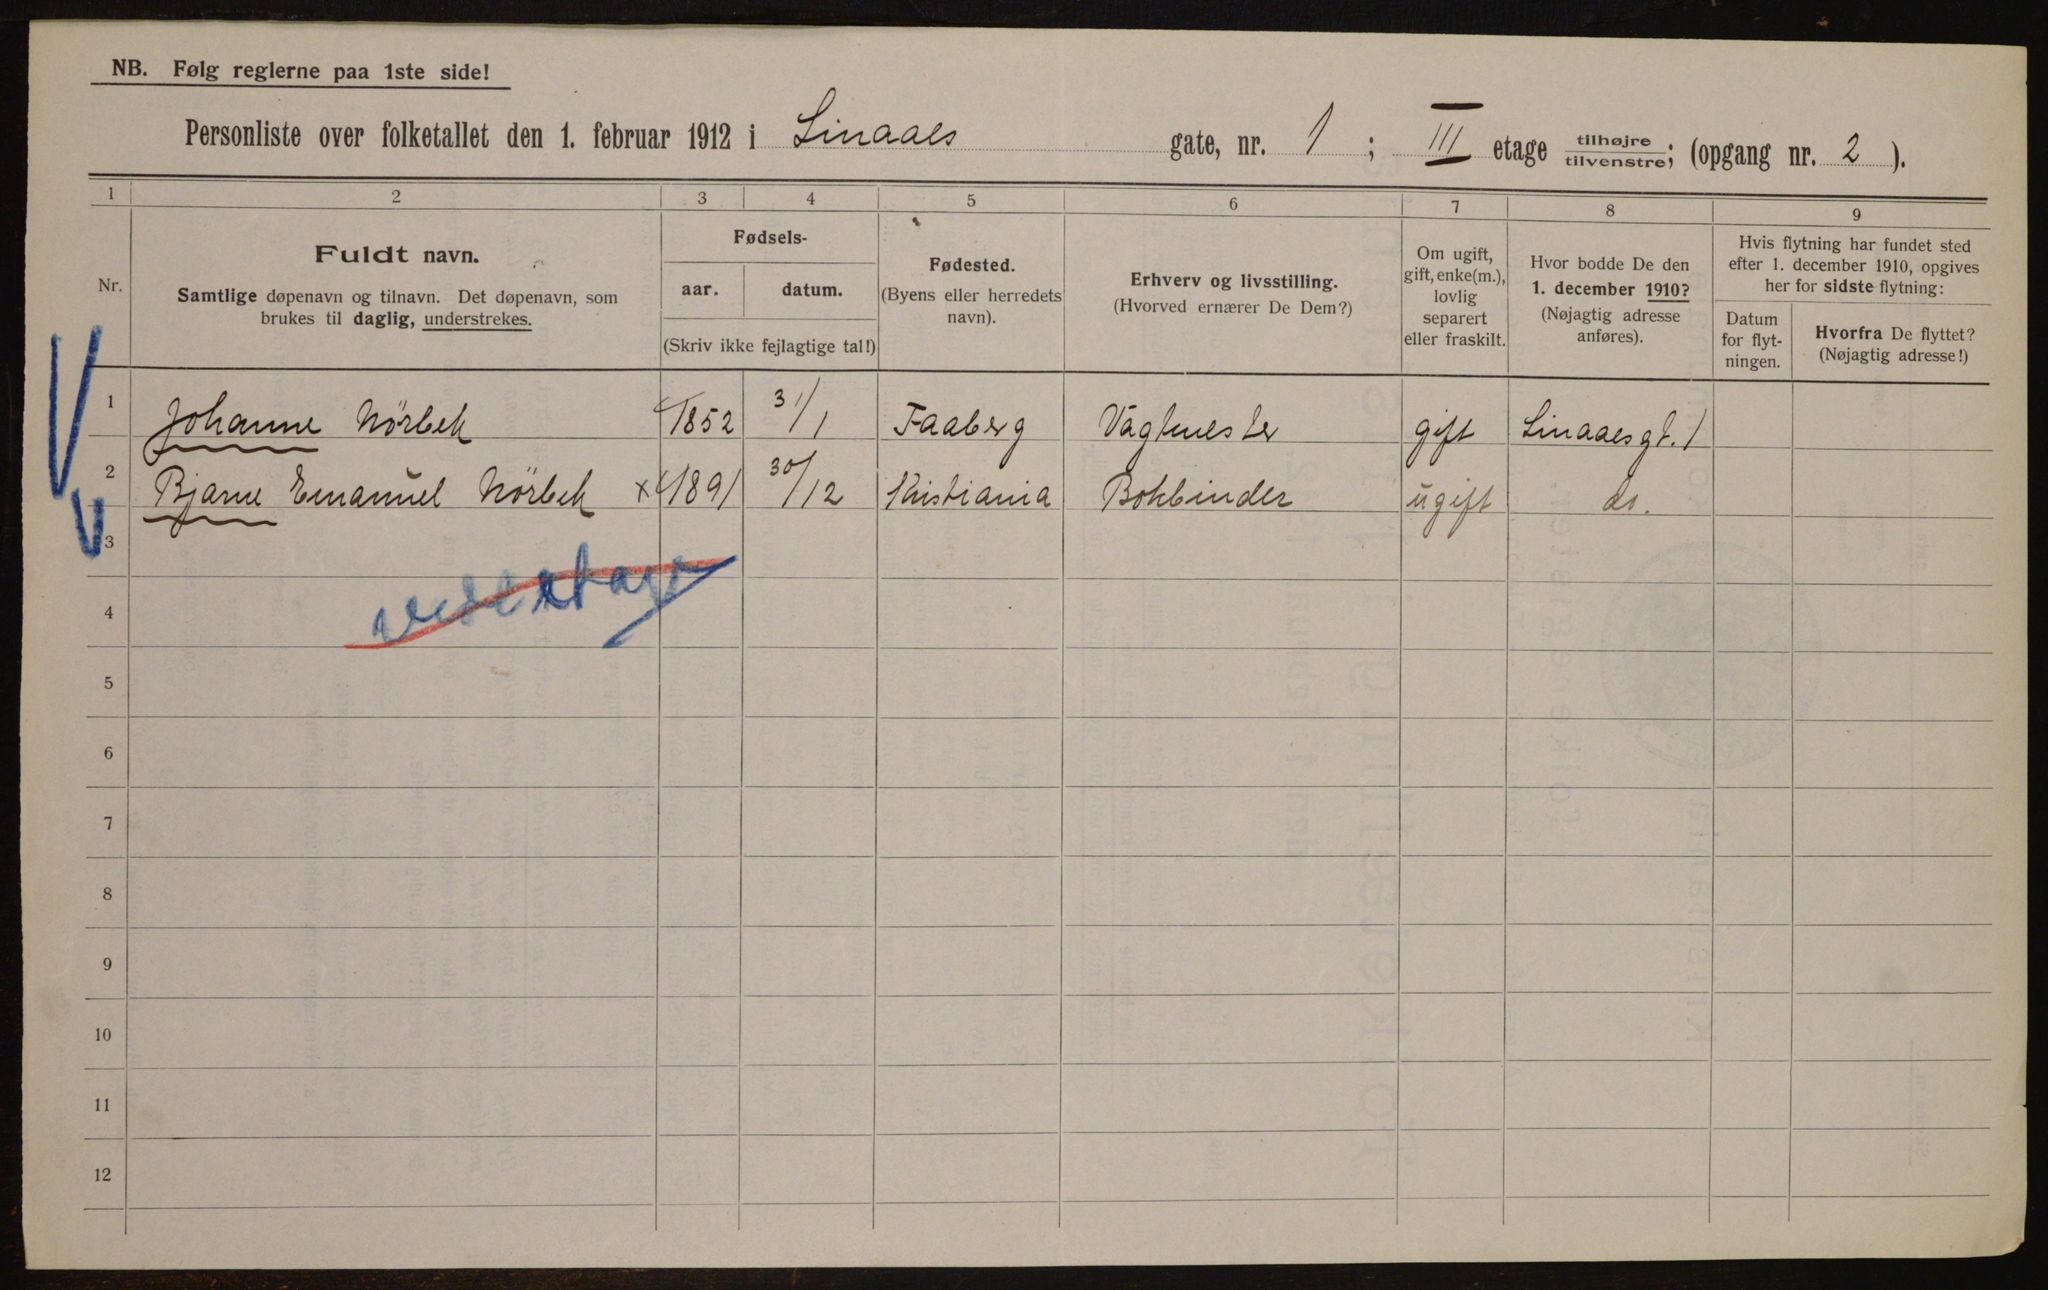 NB. Følg reglerne paa 1ste side!
Personliste over folketallet den 1. februar 1912 i Linaaes gate, nr. 1 ; III etage tilhøjre tilvenstre; (opgang nr. 2 ).
1 2 3 4 5 6 7 8 9
Nr.
Fuldt navn.
Samtlige døpenavn og tilnavn. Det døpenavn, som
brukes til daglig, understrekes.
Fødsels-
aar. datum.
(Skriv ikke fejlagtige tal!)
Fødested.
(Byens eller herredets
navn).
Erhverv og livsstilling.
(Hvorved ernærer De Dem?)
Om ugift,
gift, enke(m.),
lovlig
separert
eller fraskilt.
Hvor bodde De den
1. december 1910?
(Nøjagtig adresse
anføres).
Hvis flytning har fundet sted
efter 1. december 1910, opgives
her for sidste flytning:
Datum
for flyt-
ningen.
Hvorfra De flyttet?
(Nøjagtig adresse!)
1 Johanne Nörbek 1852 31/1 Faaberg Vagtmester gift Linaaesgt. 1
2 Bjarne Emanuel Nörbek × 1891 30/12 Kristiania Bokbinder ugift do.
3
4
5
6
7
8
9
10
11
12